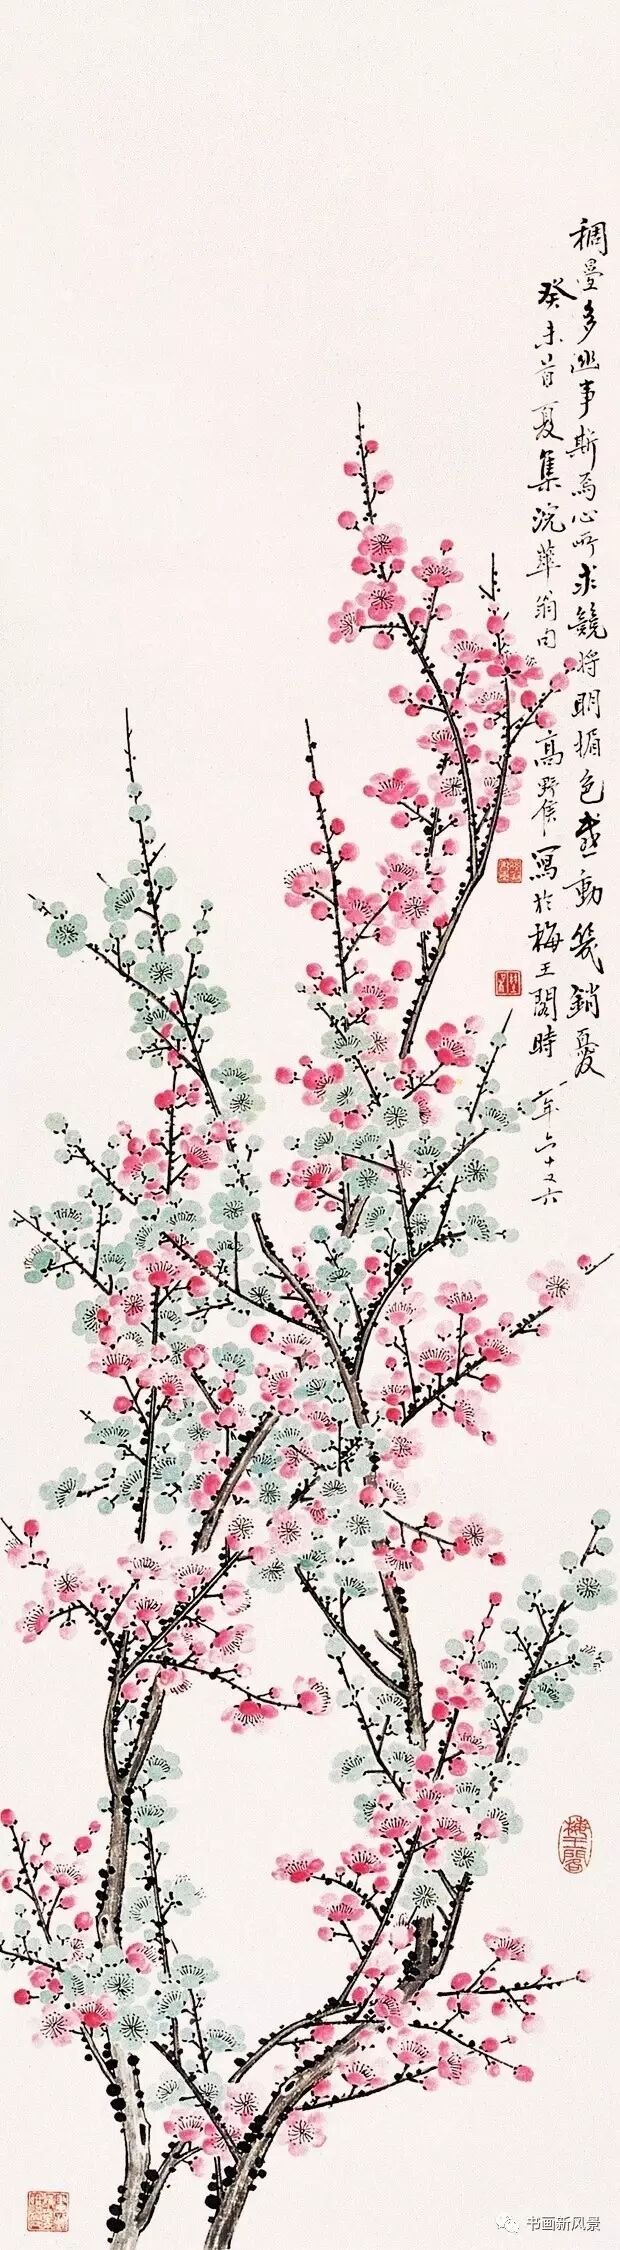 稠疊多幽事斯爲心所求競將明媚色載動幾銷憂
癸未首夏集浣華翁句 高野侯寫於梅王閣時年六十又六
梅王閣
书画新风景